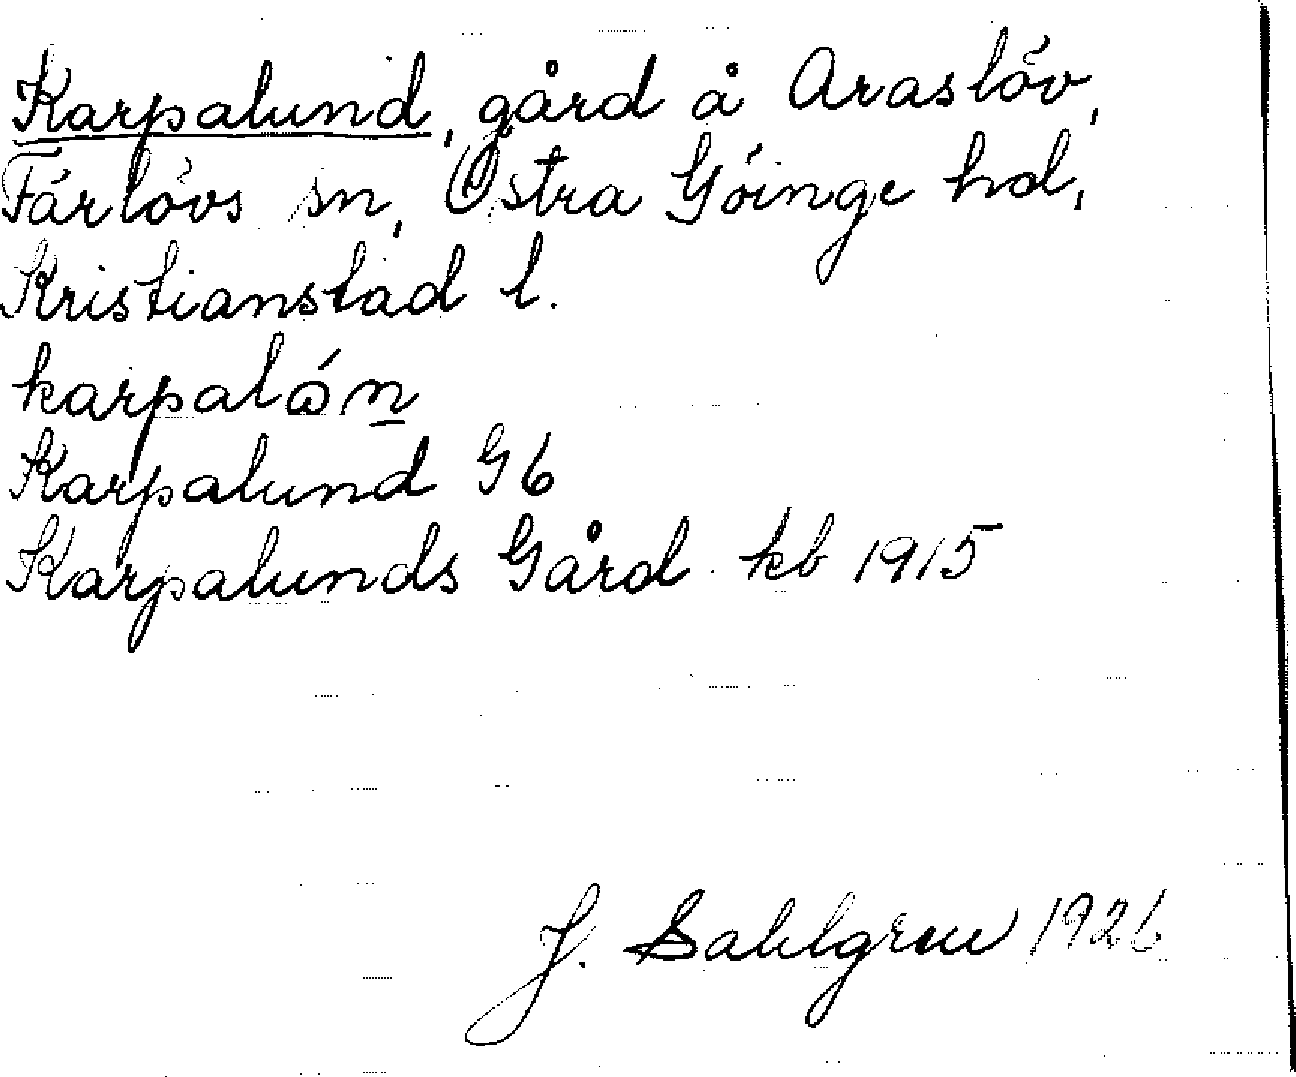 Karpalund, gård å Araslöv,
Färlövs sn, Östra Göinge hd,
Kristianstad l.
karpalón
Karpalund G6
Karpalunds Gård kb 1915
J. Sahlgren 1926